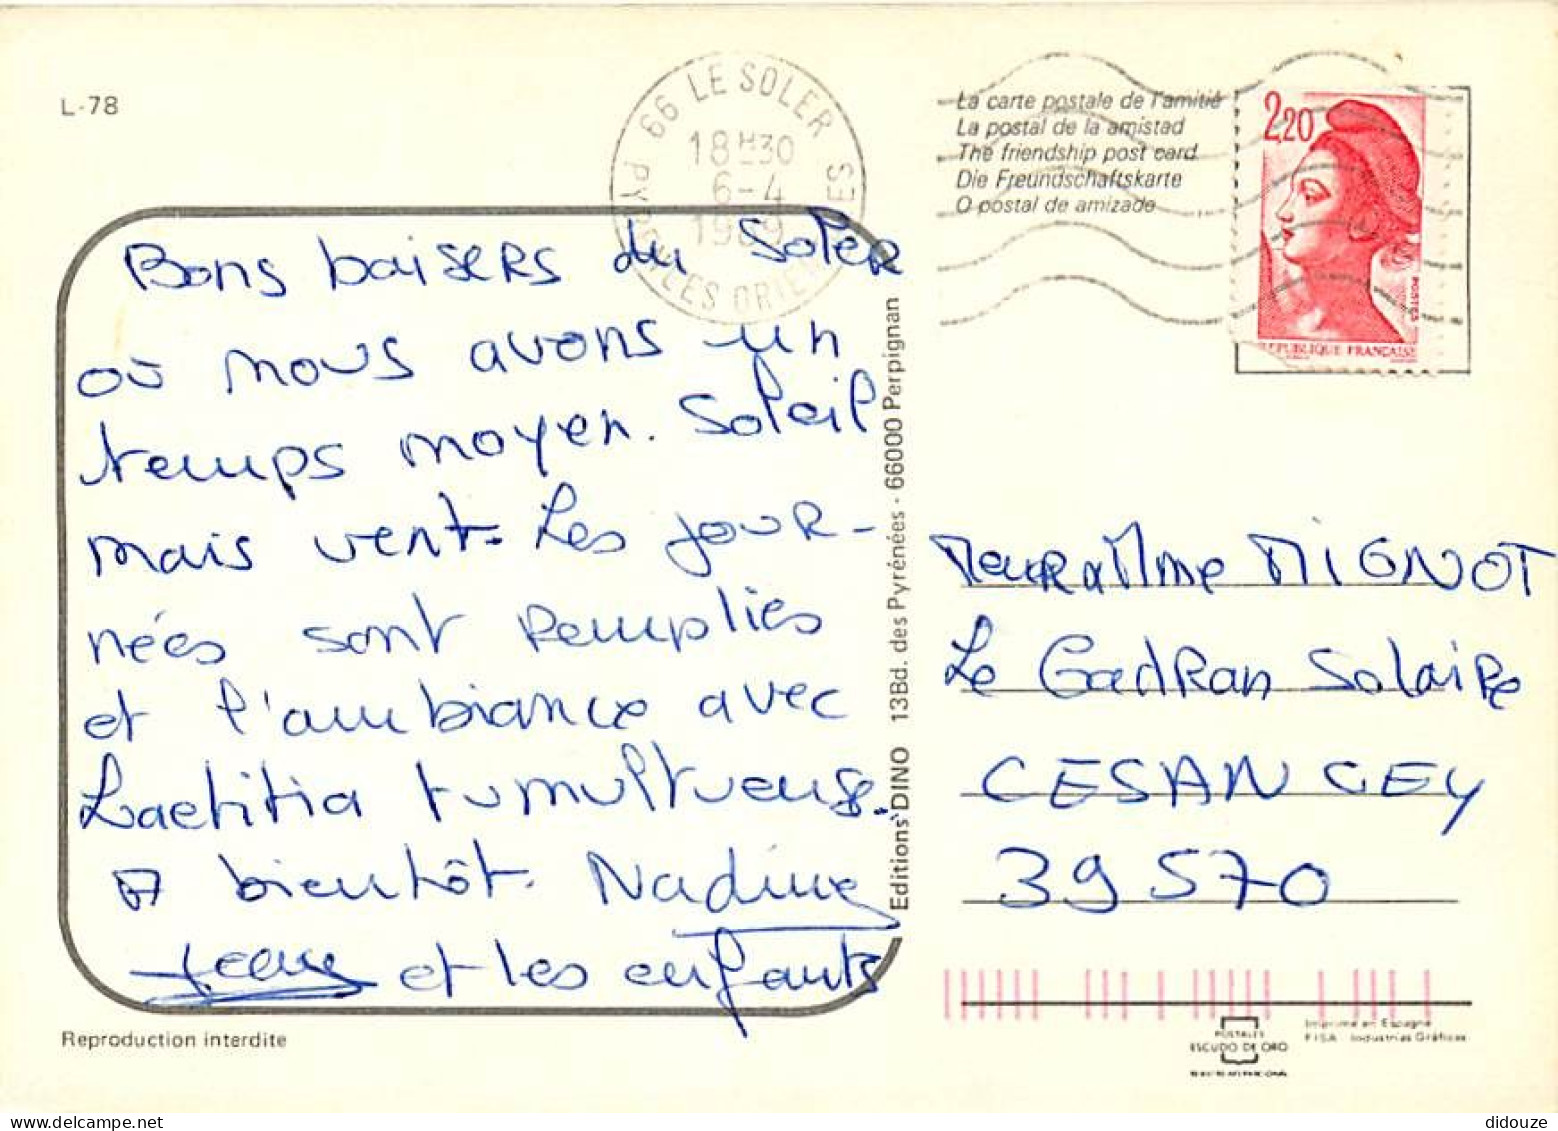 L-78
66 LE SOLER
18H30
6-4
1989
PYRENEES ORIENTALES
La carte postale de l'amitié
La postal de la amistad
The friendship post card
Die Freundschaftskarte
O postal de amizade
2,20
POSTES
REPUBLIQUE FRANÇAISE
Bons baisers du Soler
où nous avons un
temps moyen. Soleil
mais vent. Les jour-
nées sont remplies
et l'ambiance avec
Laetitia tumultueuse.
A bientôt. Nadine
et les enfants
Editions DINO 13Bd. des Pyrénées - 66000 Perpignan
Mme MIGNOT
Le Cadran Solaire
CESANCEY
39570
Reproduction interdite
POSTALES
ESCUDO DE ORO
Imprimé en Espagne
FISA Industrias Gráficas
didouze